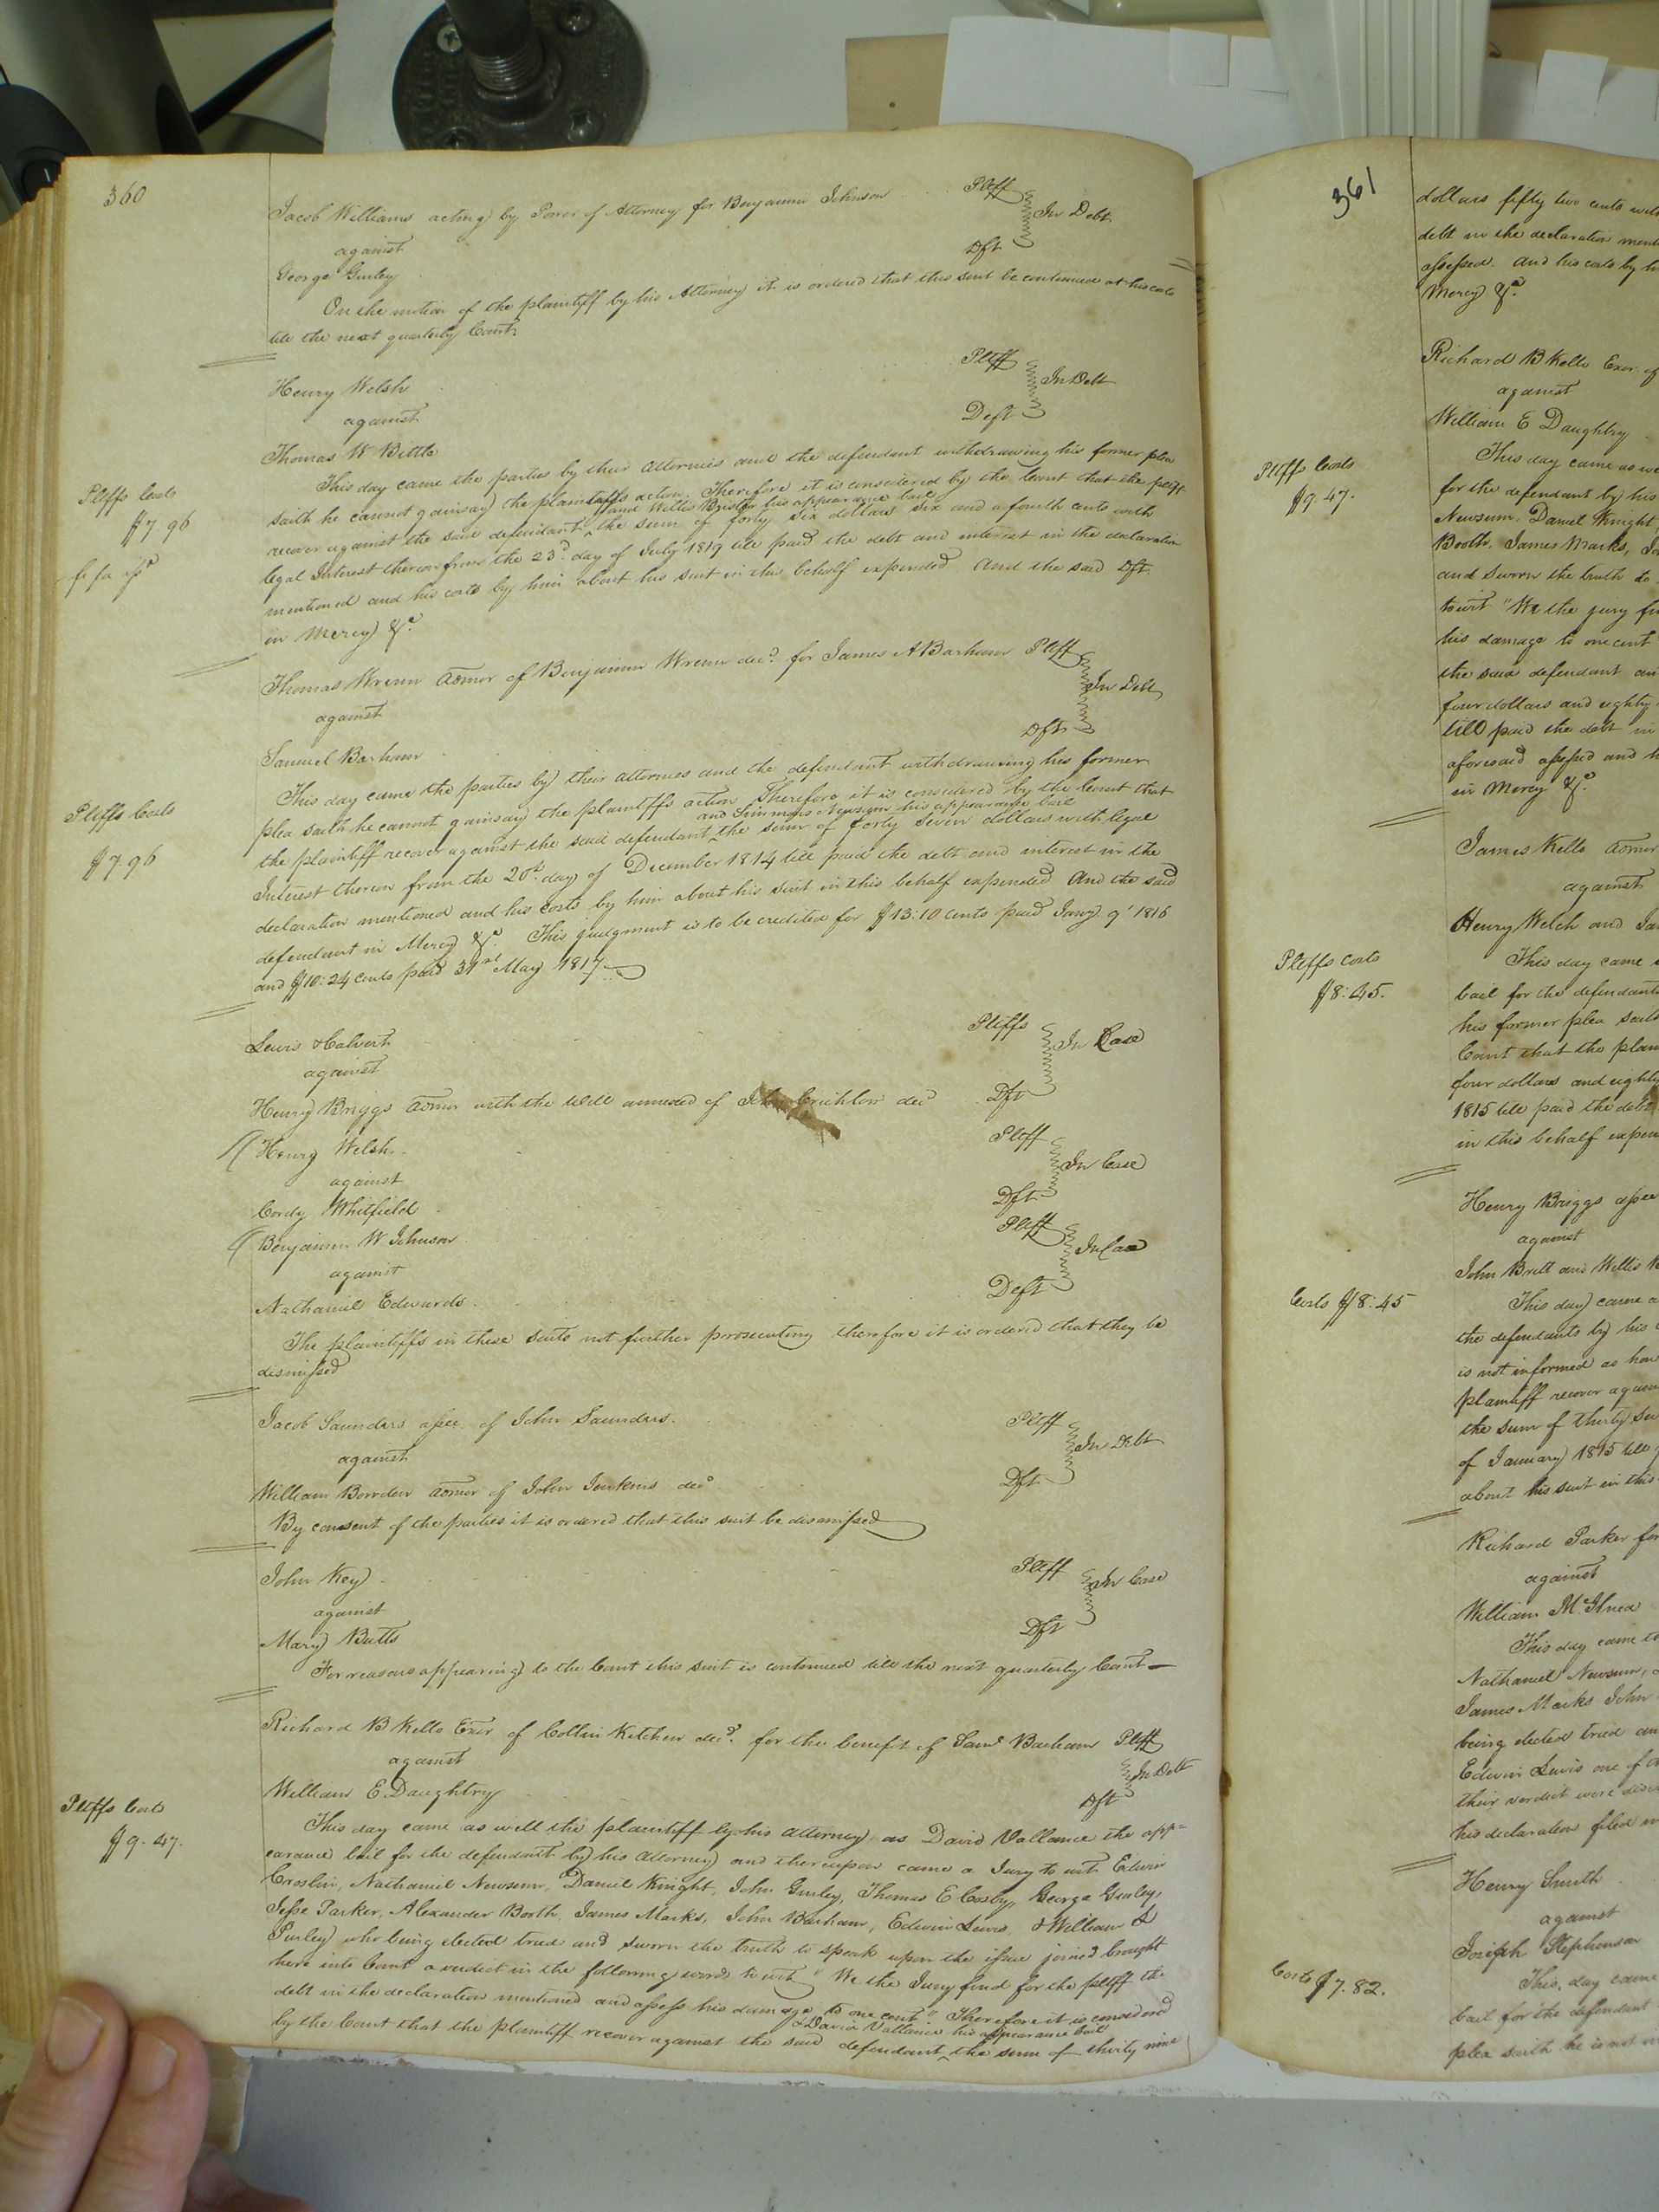 360
Jacob Williams acting by Power of Attorney for Benjamin Johnson Pltff
In Debt
against
Dft
George Gurley
On the motion of the plaintiff by his Attorney it is ordered that this suit be continued at his costs
till the next quarterly Court
Henry Welsh Pltff
In Debt
against Deft
Thomas W Bittle
This day came the parties by their attornies and the defendant withdrawing his former plea
saith he cannot gainsay the plaintiffs action. Therefore it is considered by the Court that the pltff
and Willis Bristow his appearance bail
recover against the said defendant ^ the sum of forty six dollars six and a fourth cents with
legal Interest thereon from the 23d day of July 1819 till paid the debt and interest in the declaration
mentioned and his costs by him about his suit in this behalf expended And the said Dft.
in Mercy &c.
Pltffs Costs
$7 96
fi fa issd
Thomas Wrenn admor of Benjamin Wrenn decd. for James A Barham Pltff
In Debt
against
Dft
Samuel Barham
This day came the parties by their attornies and the defendant withdrawing his former
plea saith he cannot gainsay the plaintiffs action Therefore it is considered by the Court that
and Simmons Newsom his appearance bail
the plaintiff recover against the said defendant ^ the sum of forty Seven dollars with legal
Interest thereon from the 20th. day of December 1814 till paid the debt and interest in the
declaration mentioned and his costs by him about his suit in this behalf expended And the said
defendant in Mercy &c. This judgment is to be credited for $13:10 cents paid Jany. 9' 1816
and $10:24 cents paid 31st May 1817
Pltffs Costs
$7.96
Lewis & Calvert Pltffs
In Case
against
Henry Briggs admor with the Will annexed of John Crichlow decd Dft
Henry Welsh Pltff
In Case
against
Cordy Whitfield Dft
Benjamin W Johnson Pltff
In Case
against
Nathaniel Edwards Deft
The plaintiffs in these suits not further prosecuting therefore it is ordered that they be
dismissed
Jacob Saunders assee. of John Saunders. Pltff
In Debt
against
William Bowden admor of John Jenkins decd Dft
By consent of the parties it is ordered that this suit be dismissed
John Key Pltff
In Case
against
Mary Butts Dft
For reasons appearing to the Court this suit is continued till the next quarterly Court
Richard B Kello Exor of Collin Kitchen decd. for the benefit of Saml Barham Pltff
against
In Debt
William E Daughtry Dft
This day came as well the plaintiff by his attorney, as David Vallance the app=
earance bail for the defendant by his attorney and thereupon came a Jury to wit Edwin
Croslin, Nathaniel Newsum, Daniel Knight, John Gurley, Thomas E Cosby, George Gurley,
Jesse Parker, Alexander Booth, James Marks, John Barham, Edwin Lewis, & William
Gurley who being elected tried and sworn the truth to speak upon the issue joined brought
here into Court a verdict in the following words to wit "We the Jury find for the pltff the
debt in the declaration mentioned and assess his damage to one cent" Therefore it is considered
& David Vallance his appearance bail
by the Court that the plaintiff recover against the said defendant ^ the sum of thirty nine
Pltffs Costs
$9.47.
361
dollars fifty two cents with
debt in the declaration
assessed. And his costs by
Mercy &c.
Richard B Kello Exor. of
against
William E Daughtry
Pltffs Costs
$9 47.
This day came as
for the defendant by his
Newsum, Daniel Knight
Booth, James Marks,
and sworn the truth to
towit "We the jury
his damage to one cent
the said defendant
four dollars and eighty
till paid the debt in
aforesaid assessed and
in Mercy &c.
James Kello admor
against
Henry Welch and
Pltffs Costs
$8:45.
This day came
bail for the defendants
his former plea
Court that the
four dollars and eighty
1815 till paid the debt
in this behalf
Henry Briggs assee
against
John Britt and Willis
Costs $8:45
This day came
the defendants by his
is not informed as how
plaintiff recover
the sum of thirty
of January 1815 till
about his suit in this
Richard Parker for
against
William
This day came
Nathaniel Newsum,
James Marks John
being elected tried
Edwin Lewis one of
their verdict were
his declaration filed
Henry Smith
against
Joseph Stephenson
Costs $7.82.
This day came
bail for the defendant
plea saith he is not